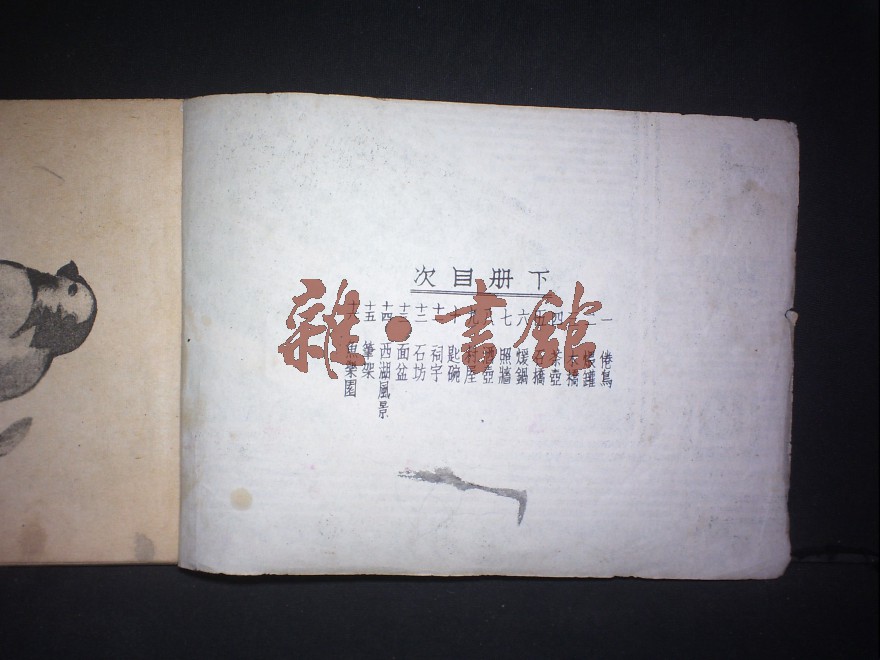 下册目次
一 倦鳥
二 煖罐
三 木橋
四 茶壺
五 石橋
六 煖鍋
七 照牆
八 酒壺
九 村屋
十 匙碗
十一 祠宇
十二 石坊
十三 面盆
十四 西湖風景
十五 筆架
十六 魚樂園
雜·書館